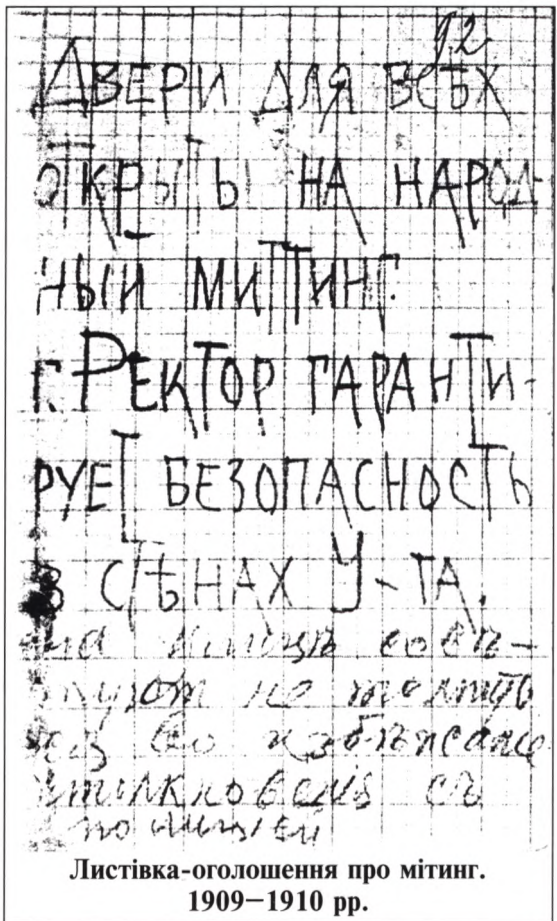 92
ДВЕРИ ДЛЯ ВСѢХ
ОТКРЫТЫ НА НАРОД
НЫЙ МИТТИНГ.
Г. РЕКТОР ГАРАНТИ-
РУЕТ БЕЗОПАСНОСТЬ
В СТѢНАХ У-ТА.
на улицѣ совѣ-
туют не толпить
ся во избѣжание
съ
полицией
Листівка-оголошення про мітинг.
1909–1910 рр.